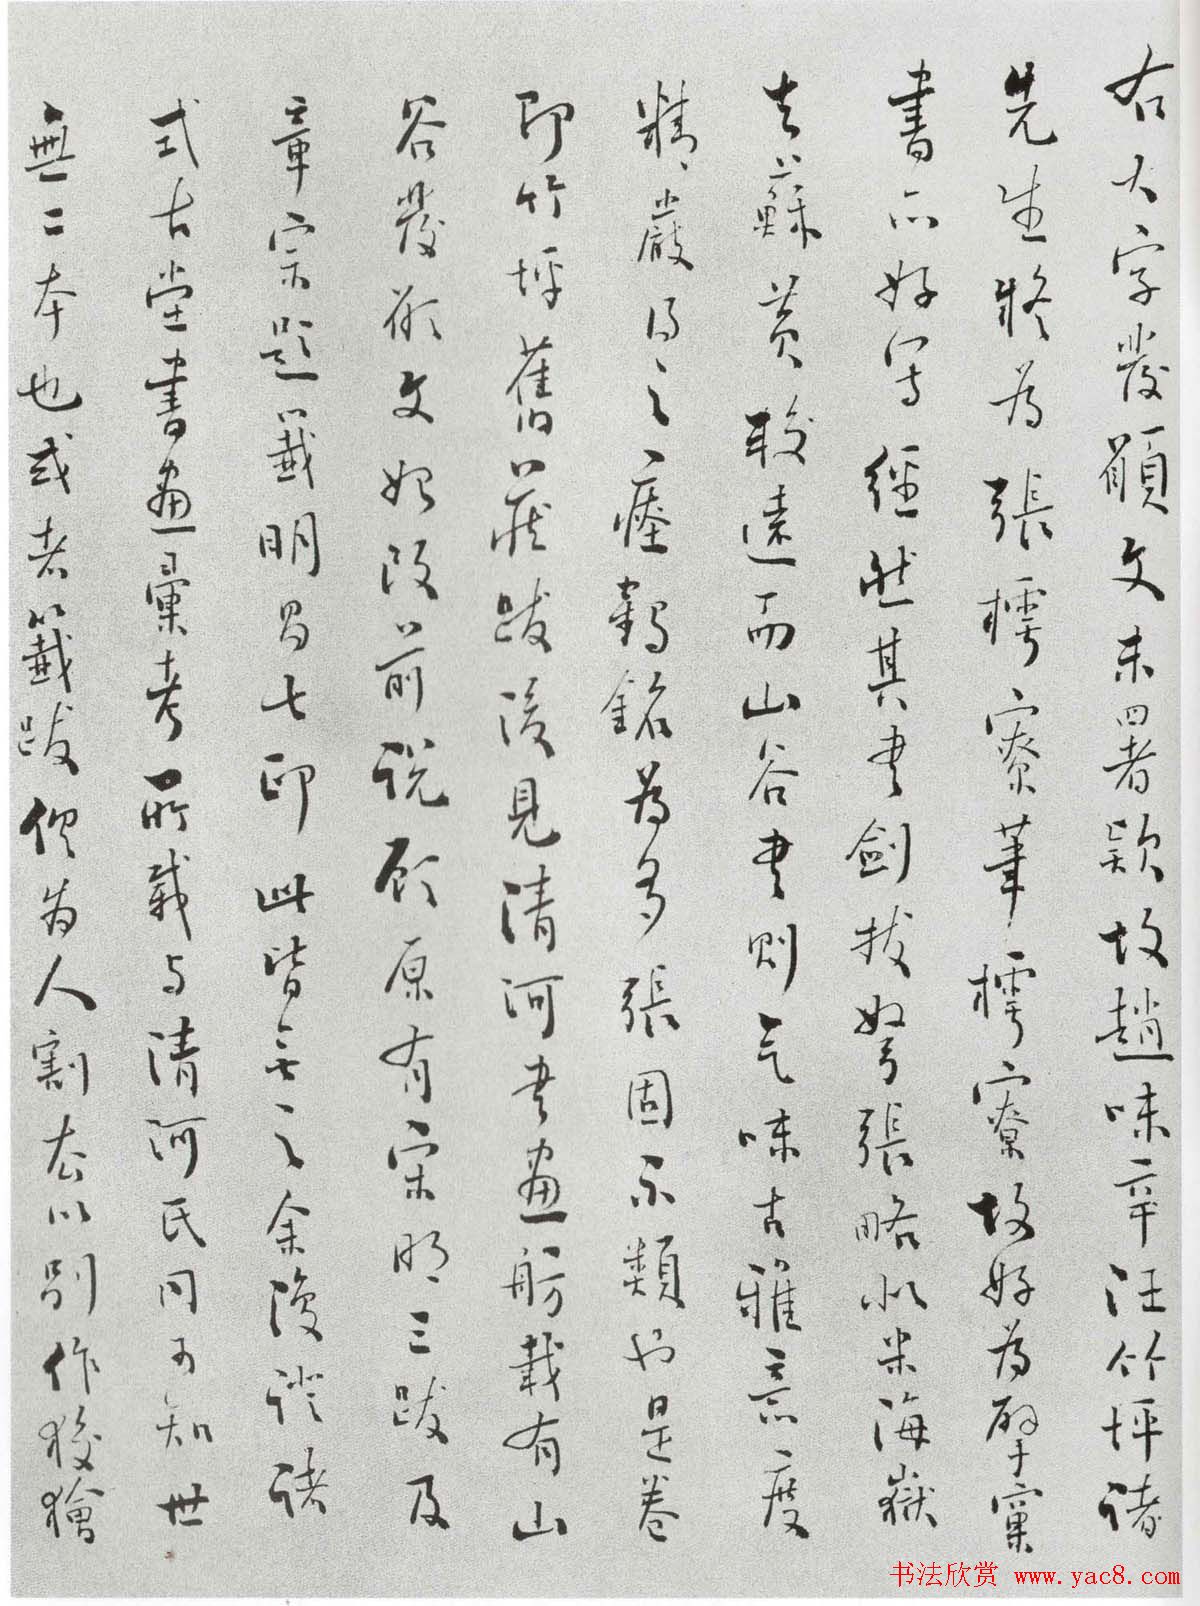 右大字發願文未署款故趙味辛汪竹坪諸
先生疑為張樗寮筆樗寮故好為擘窠
書亦好寫經然其書劍拔弩張略似米海嶽
去蘇黃較遠而山谷書則氣味古雅意度
精嚴得之瘞鶴銘為多張固不類也是卷
即竹坪舊藏跋後見清河書畫舫載有山
谷發願文始改前說顧原有宋明三跋及
章宗題籤明昌七印此皆無之余復證諸
式古堂書畫彙考所載与清河氏同可知世
無二本也或者籤跋俱為人割去以别作狡獪
书法欣赏 www.yac8.com